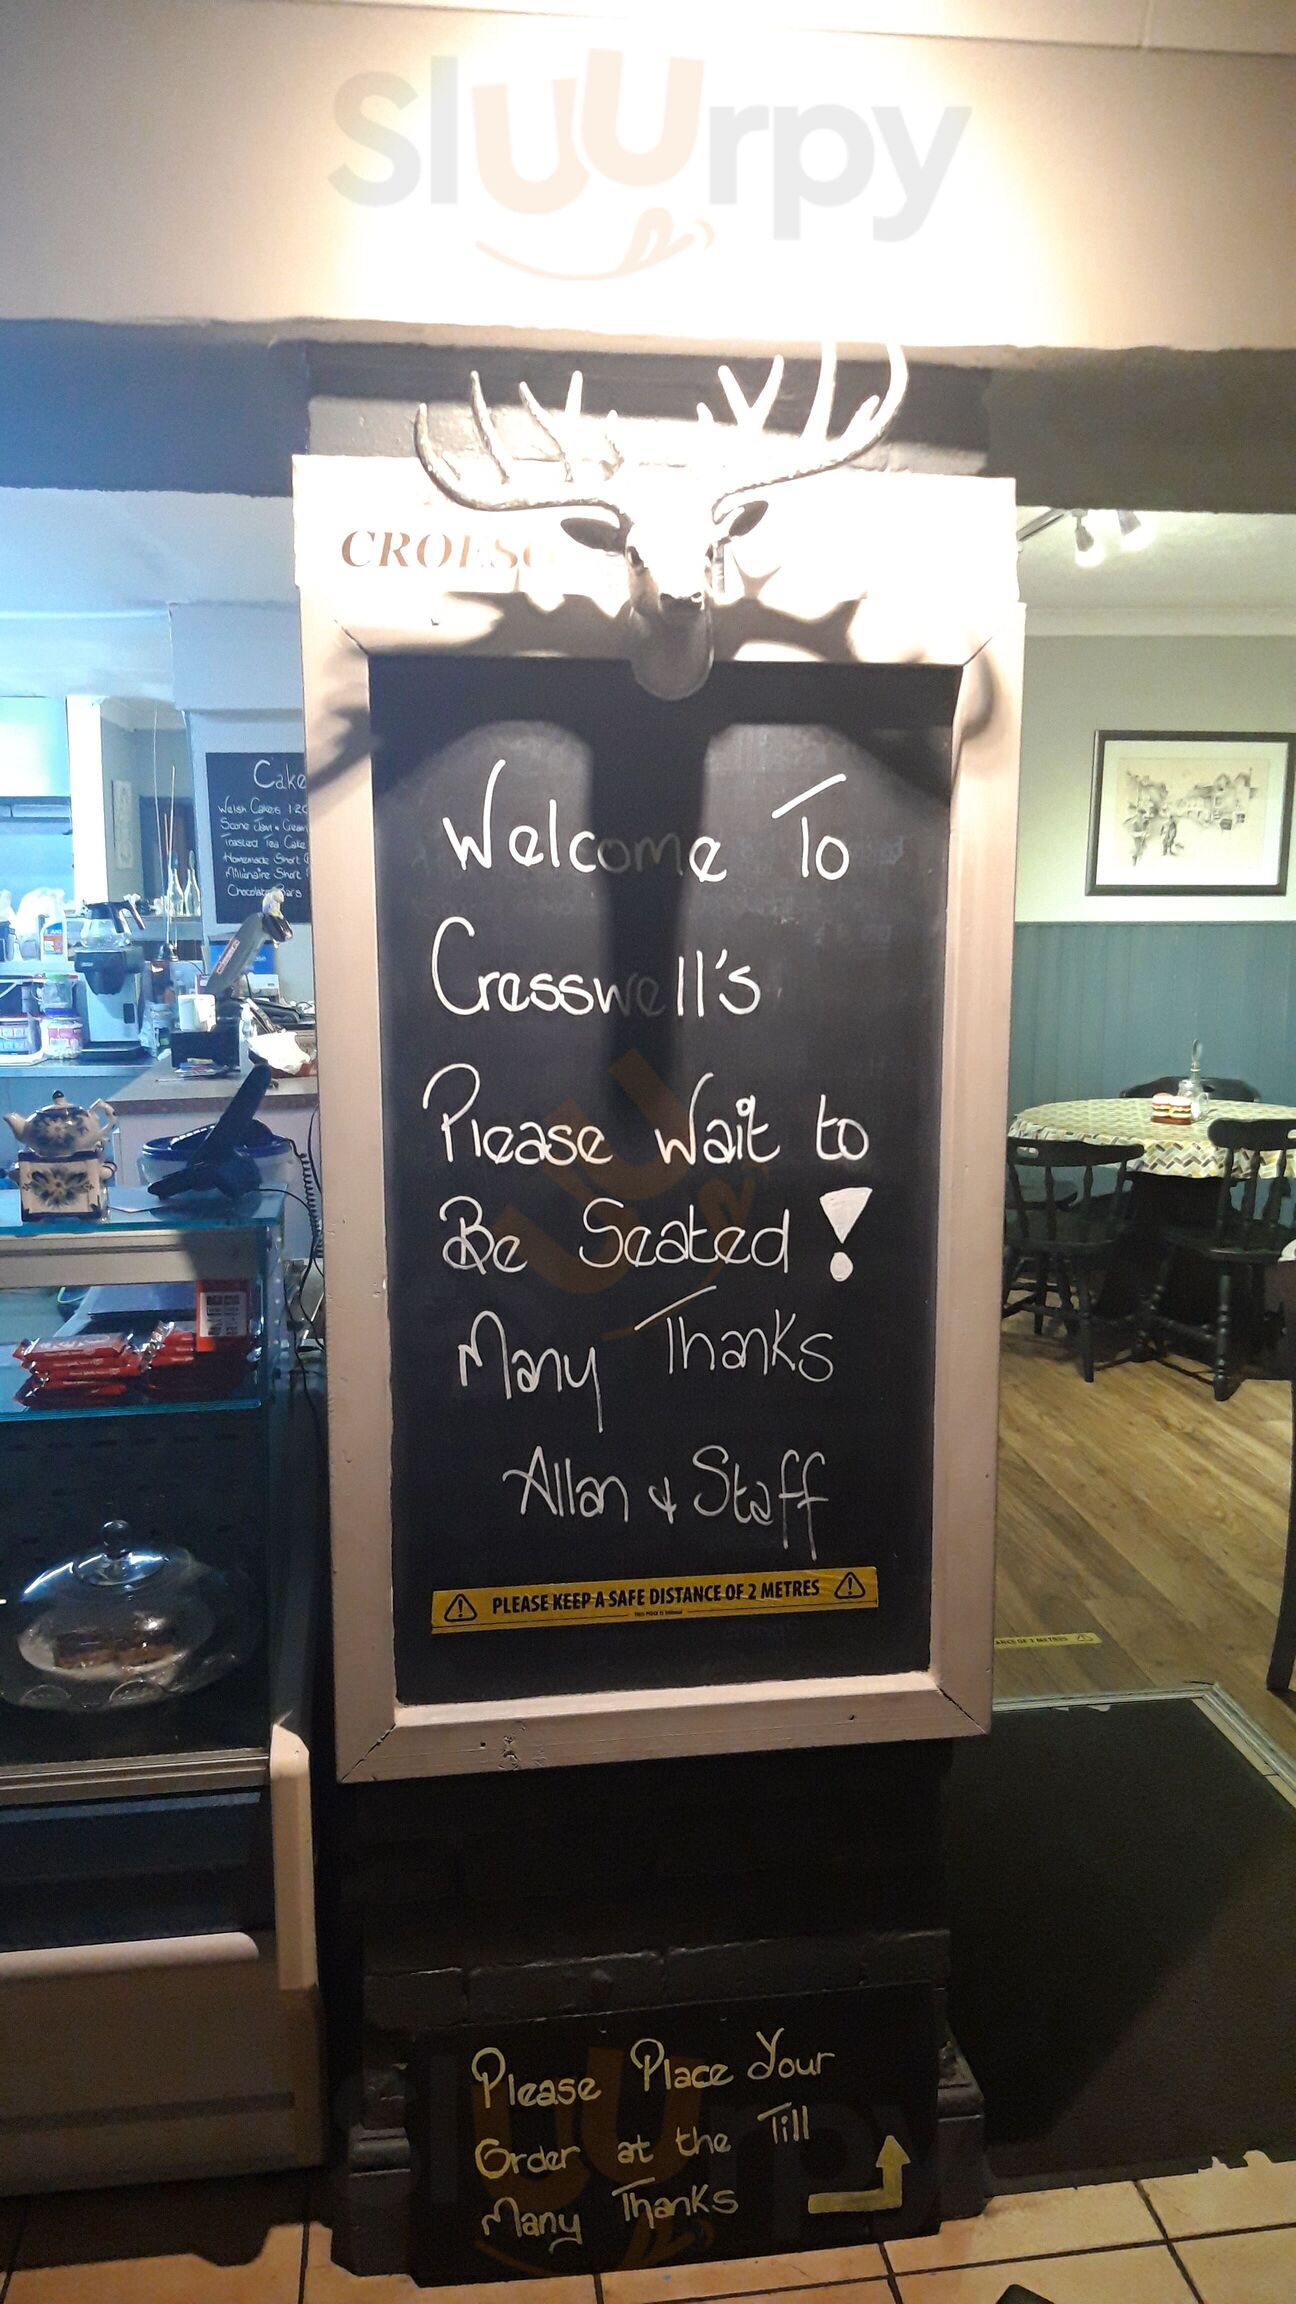 Sluurpy
CROESO
Cake
Welsh Cakes 1.20
Scone Jam & Cream
Toasted Tea Cake
Homemade Short
Millionaire Short
Chocolate Bars
Welcome To
Cresswell's
Please Wait to
Be Seated!
Many Thanks
Allan & Staff
PLEASE KEEP A SAFE DISTANCE OF 2 METRES
OF 2 METRES
Please Place Your
Order at the Till
Many Thanks